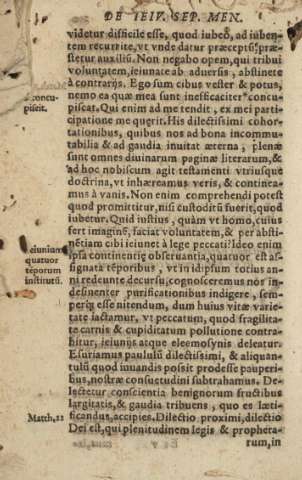 DE IEIV. SEP. MEN.
videtur difficile esse, quod iubeo, ad iubentem
recurrite, vt vnde datur præceptū, præstetur
auxiliū. Non negabo opem, qui tribui
voluntatem, ieiunate ab aduersis, abstinete
à contrarijs. Ego sum cibus vester & potus,
nemo ea quæ mea sunt inefficaciter concupiscat.
concupiscit.
Qui enim ad me tendit, ex mei participatione
me quærit. His dilectissimi cohortationibus,
quibus nos ad bona incommutabilia
& ad gaudia inuitat æterna, plenæ
sunt omnes diuinarum paginæ literarum, &
ad hoc nobiscum agit testamenti vtriusque
doctrina, vt inhæreamus veris, & contineamus
à vanis. Non enim comprehendi potest
quod promittitur, nisi custoditū fuerit, quod
iubetur. Quid iustius, quàm vt homo, cuius
fert imaginē, faciat voluntatem, & per abstinētiam
cibi ieiunet à lege peccati? Ideo enim
ieiunium
quatuor
tēporum
institutū.
ipsa continentię obseruantia, quatuor est assignata
tēporibus, vt in idipsum totius anni
redeunte decursu, cognosceremus nos indesinenter
purificationibus indigere, semperq;
esse nitendum, dum huius vitæ varietate
iactamur, vt peccatum, quod fragilitate
carnis & cupiditatum pollutione contrahitur,
ieiunijs atque eleemosynis deleatur.
Esuriamus paululū dilectissimi, & aliquantulū
quod iuuandis possit prodesse pauperibus,
nostræ consuetudini subtrahamus. Delectetur
conscientia benignorum fructibus
largitatis, & gaudia tribuens, quo es lætificandus,
accipies. Dilectio proximi, dilectio
Matth. 22
Dei est, qui plenitudinem legis & prophetarum,
in